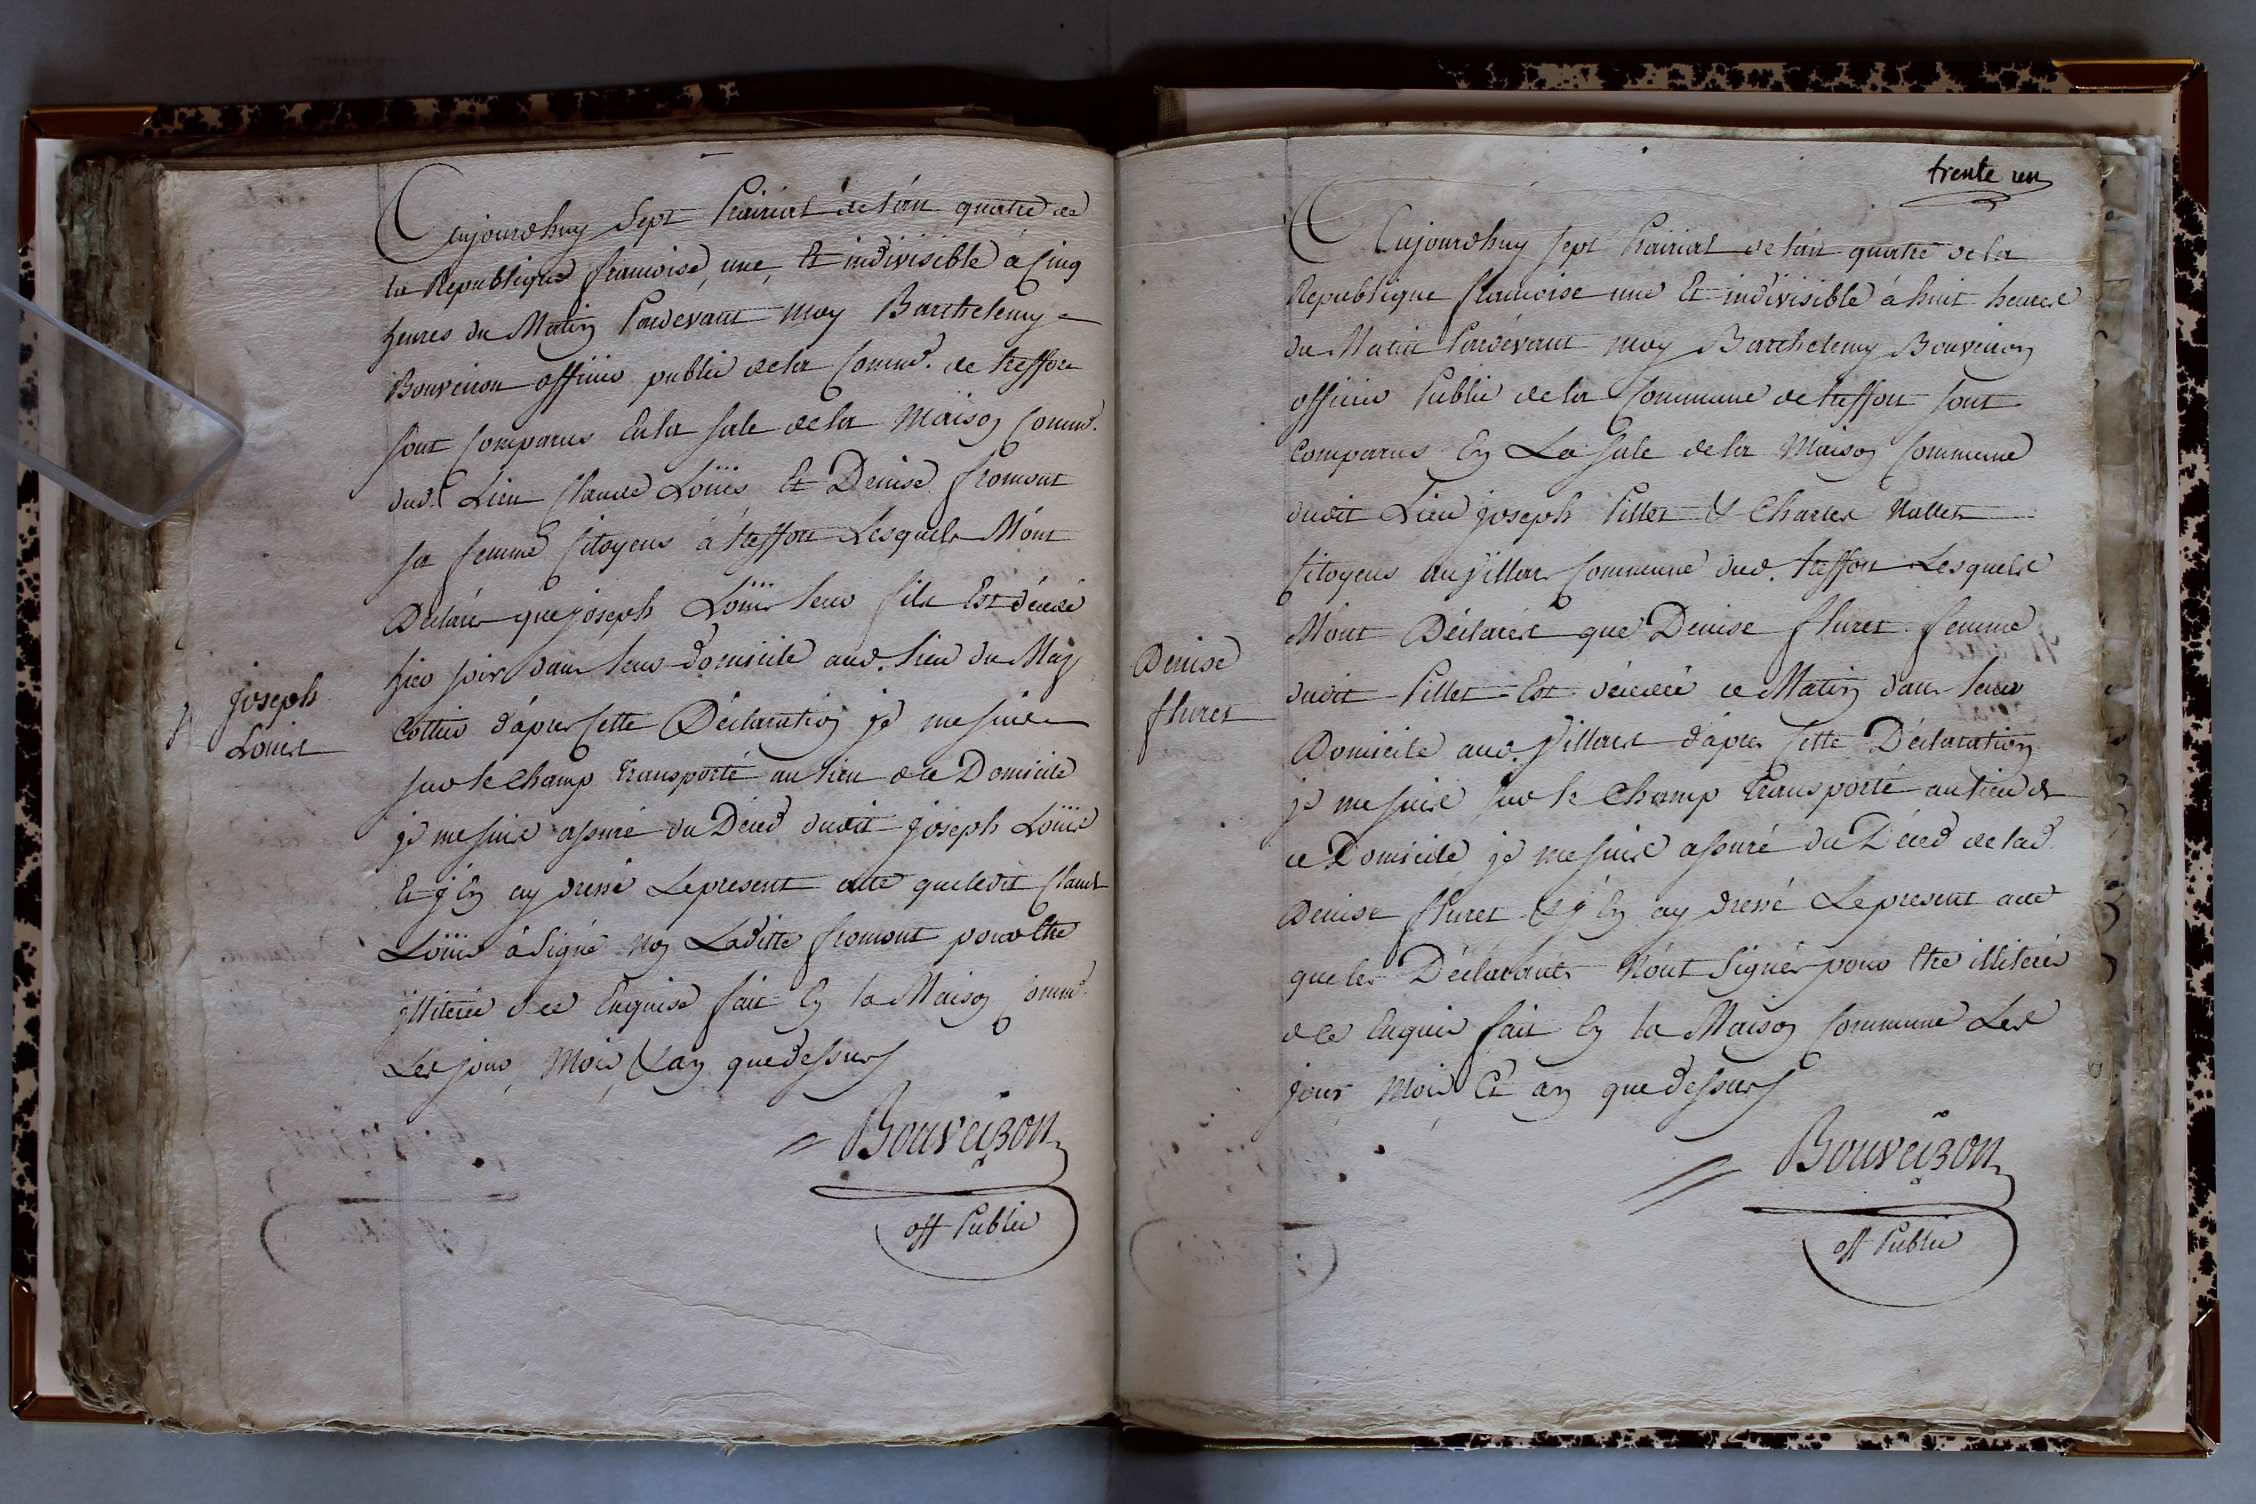 Aujourdhuy Sept Prairial de l'an quatre de
la Republique francoise, une, Et indivisible à Cinq
heures du Matin Pardevant moy Barthelemy
Bouveiron officier public de la Comm.e de treffort
sont Comparus En la sale de la Maison Comm.e
dud.t Lieu Claude Loüis Et Denise fromont
sa femme Citoyens à treffort Lesquels M'ont
Déclarés que joseph Loüis leur fils Est décédé
hier soir dans leur domicile aud. lieu du
d'apres Cette Déclaration je me suis
sur le Champ transporté au lieu de ce Domicile
je me suis assuré du Déced dudit joseph Loüis
Et j'En ay dressé Le present acte que ledit Claude
Loüis à Signé non Laditte fromont pour être
illiterée de ce Enquise fait En la Maison Comm.e
Les jour, Mois, & an que dessus
Bouveiron
off Public
joseph
Louis
trente un
Aujourdhuy sept Prairial de l'an quatre de la
Republique francoise une Et indivisible à huit heures
du Matin Pardevant moy Barthelemy Bouveiron
officier Public de la Commune de treffort sont
Comparus En La sale de la Maison Commune
dudit Lieu joseph Pillet & Charles Nallet
Citoyens au villars Commune dud. treffort Lesquels
M'ont Déclarés que Denise fluret femme
dudit Pillet Est décédée ce Matin dans leur
Domicile aud. villars d'apres Cette Déclaration
je me suis sur le Champ transporté au lieu de
ce Domicile je me suis assuré du Déced de lad.
Denise fluret & j'En ay dressé Le present acte
que les Déclarants N'ont Signés pour être illiterés
de ce Enquis fait En la Maison Commune Les
jour Mois Et an que dessus
Bouveiron
off Public
Denise
fluret